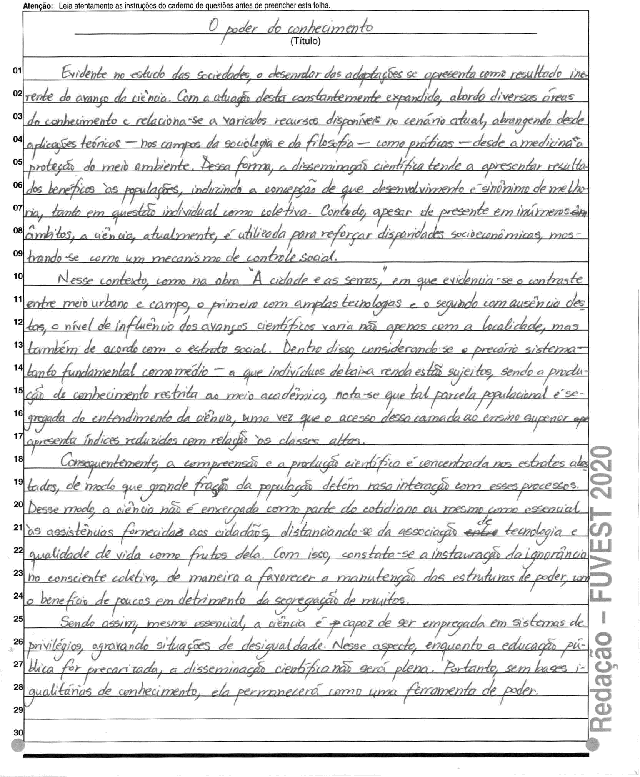 Atenção: Leia atentamente as instruções do caderno de questões antes de preencher esta folha.
O poder do conhecimento
(Título)
01 Evidente no estudo das sociedades, o desenrolar das adaptações se apresenta como resultado ine-
02 rente do avanço da ciência. Com a atuação desta constantemente expandida, aborda diversas áreas
03 do conhecimento e relaciona-se a variados recursos disponíveis no cenário atual, abrangendo desde
04 aplicações teóricas — nos campos da sociologia e da filosofia — como práticas — desde a medicina à
05 proteção do meio ambiente. Dessa forma, a disseminação científica tende a apresentar resulta-
06 dos benéficos às populações, induzindo a concepção de que desenvolvimento é sinônimo de melho-
07 ria, tanto em questão individual como coletiva. Contudo, apesar de presente em inúmeros
08 âmbitos, a ciência, atualmente, é utilizada para reforçar disparidades socioeconômicas, mos-
09 trando-se como um mecanismo de controle social.
10 Nesse contexto, como na obra "A cidade e as serras," em que evidencia-se o contraste
11 entre meio urbano e campo, o primeiro com amplas tecnologias e o segundo com ausência des-
12 tas, o nível de influência dos avanços científicos varia não apenas com a localidade, mas
13 também de acordo com o estrato social. Dentro disso, considerando-se o precário sistema —
14 tanto fundamental como médio — a que indivíduos de baixa renda estão sujeitos, sendo a produ-
15 ção de conhecimento restrita ao meio acadêmico, nota-se que tal parcela populacional é se-
16 gregada do entendimento da ciência, uma vez que o acesso dessa camada ao ensino superior
17 apresenta índices reduzidos com relação às classes altas.
18 Consequentemente, a compreensão e a produção científica é concentrada nos estratos abas-
19 tados, de modo que grande fração da população detém rasa interação com esses processos.
20 Desse modo, a ciência não é enxergada como parte do cotidiano ou mesmo como essencial
21 às assistências fornecidas aos cidadãos, distanciando-se da associação de tecnologia e
22 qualidade de vida como frutos dela. Com isso, constata-se a instauração da ignorância
23 no consciente coletivo, de maneira a favorecer a manutenção das estruturas de poder, com
24 o benefício de poucos em detrimento da segregação de muitos.
25 Sendo assim, mesmo essencial, a ciência é capaz de ser empregada em sistemas de
26 privilégios, agravando situações de desigualdade. Nesse aspecto, enquanto a educação pú-
27 blica for precarizada, a disseminação científica não será plena. Portanto, sem bases i-
28 gualitárias de conhecimento, ela permanecerá como uma ferramenta de poder.
29
30
Redação – FUVEST 2020